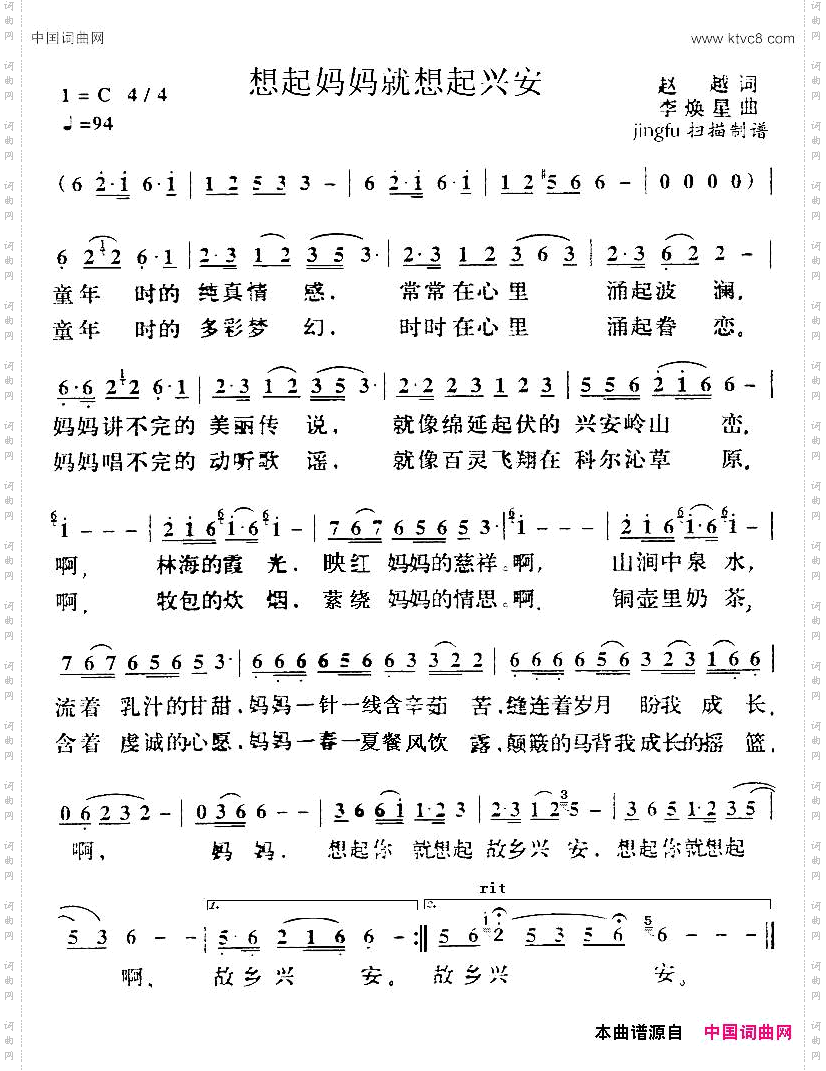 中国词曲网 www.ktvc8.com
想起妈妈就想起兴安
1=C 4/4
♩=94
赵越词
李焕星曲
jingfu 扫描制谱
(6 2·i 6·i | 1 2 5 3 3 - | 6 2·i 6·i | 1 2 #5 6 6 - | 0 0 0 0) |
6 2 2 6·1 | 2·3 1 2 3 5 3· | 2·3 1 2 3 6 3 | 2·3 6 2 2 - |
童年 时的 纯真情 感, 常常在心里 涌起波 澜,
童年 时的 多彩梦 幻, 时时在心里 涌起眷 恋。
6·6 2 2 6·1 | 2·3 1 2 3 5 3· | 2·2 2 3 1 2 3 | 5 5 6 2 i 6 6 - |
妈妈讲不完的 美丽传 说, 就像绵延起伏的 兴安岭山 峦。
妈妈唱不完的 动听歌 谣, 就像百灵飞翔在 科尔沁草 原。
i - - - | 2 i 6 i·6 i - | 7 6 7 6 5 6 5 3· | i - - - | 2 i 6 i·6 i - |
啊, 林海的霞 光, 映红 妈妈的慈祥。啊, 山涧中泉 水,
啊, 牧包的炊 烟, 萦绕 妈妈的情思。啊, 铜壶里奶 茶,
7 6 7 6 5 6 5 3· | 6 6 6 6 5 6 6 3 3 2 2 | 6 6 6 6 5 6 3 2 2 3 1 6 6 |
流着 乳汁的甘甜,妈妈一针一线含辛茹 苦,缝连着岁月 盼我 成 长,
含着 虔诚的心愿,妈妈一春一夏餐风饮 露,颠簸的马背我成长的摇 篮,
0 6 2 3 2 - | 0 3 6 6 - - | 3 6 6 i 1·2 3 | 2·3 1 2 5 - | 3 6 5 1·2 3 5 |
啊, 妈 妈, 想起你 就想起 故乡兴 安, 想起你就想起
5 3 6 - - | 1. 5·6 2 1 6 6 - :‖ 2. rit 5 6 2 5 3 5 6 6 - - ‖
啊, 故乡兴 安。故乡兴 安。
本曲谱源自 中国词曲网